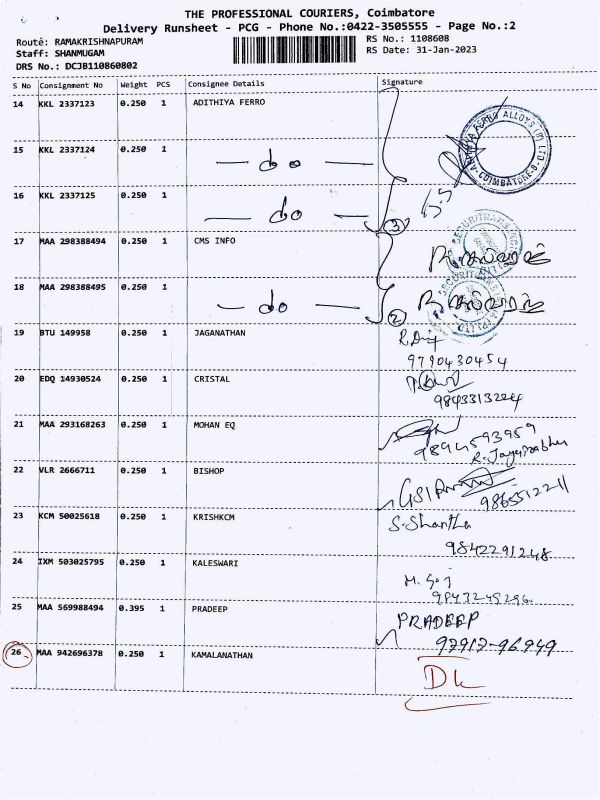 THE PROFESSIONAL COURIERS, Coimbatore
Delivery Runsheet - PCG - Phone No.:0422-3505555 - Page No.:2
Route: RAMAKRISHNAPURAM RS No.: 1108608
Staff: SHANMUGAM RS Date: 31-Jan-2023
DRS No.: DCJB110860802
S No Consignment No Weight PCS Consignee Details Signature
14 KKL 2337123 0.250 1 ADITHIYA FERRO
15 KKL 2337124 0.250 1 — do —
16 KKL 2337125 0.250 1 — do — 3
17 MAA 298388494 0.250 1 CMS INFO
18 MAA 298388495 0.250 1 — do — 2
19 BTU 149958 0.250 1 JAGANATHAN
9790430454
20 EDQ 14930524 0.250 1 CRISTAL
9843313224
21 MAA 293168263 0.250 1 MOHAN EQ
9894593959
22 VLR 2666711 0.250 1 BISHOP
23 KCM 50025618 0.250 1 KRISHKCM S. Shantha
9842291248
24 IXM 503025795 0.250 1 KALESWARI
25 MAA 569988494 0.395 1 PRADEEP PRADEEP
26 MAA 942696378 0.250 1 KAMALANATHAN